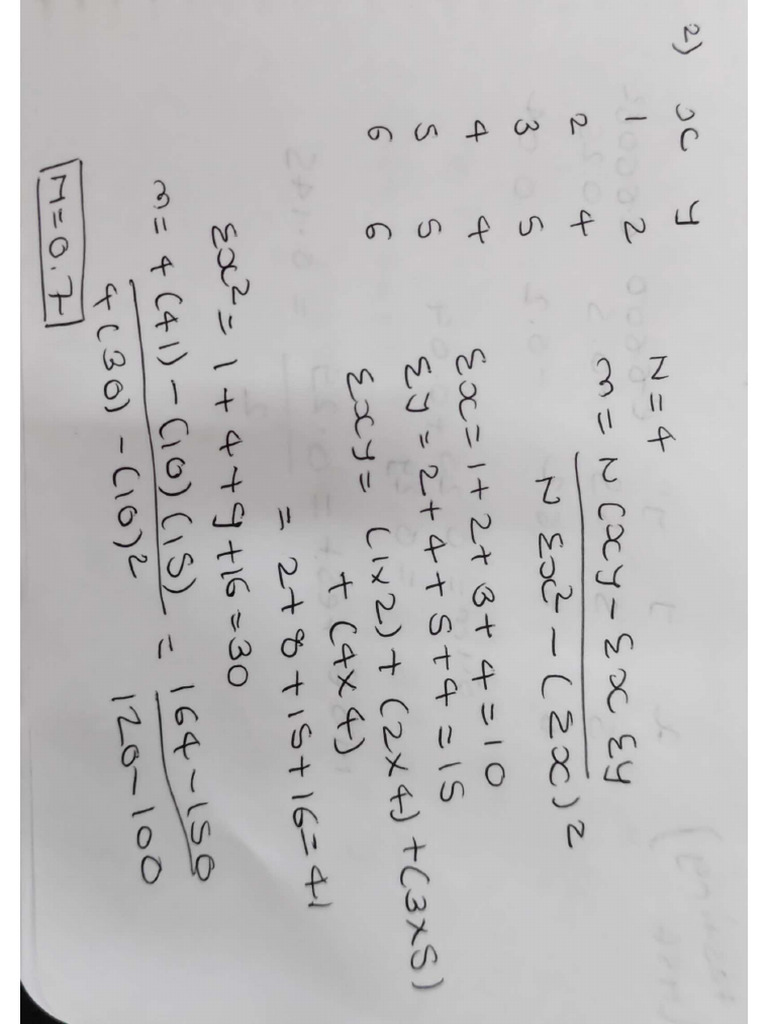 2) x y
1 2
2 4
3 5
4 4
5 5
6 6
N=4
m = N(xy - Σx Σy / N Σx² - (Σx)²
Σx = 1+2+3+4 = 10
Σy = 2+4+5+4 = 15
Σxy = (1x2)+(2x4)+(3x5)
+(4x4)
= 2+8+15+16 = 41
Σx² = 1+4+9+16 = 30
m = 4(41) - (10)(15) / 4(30) - (10)² = 164-150 / 120-100
M = 0.7